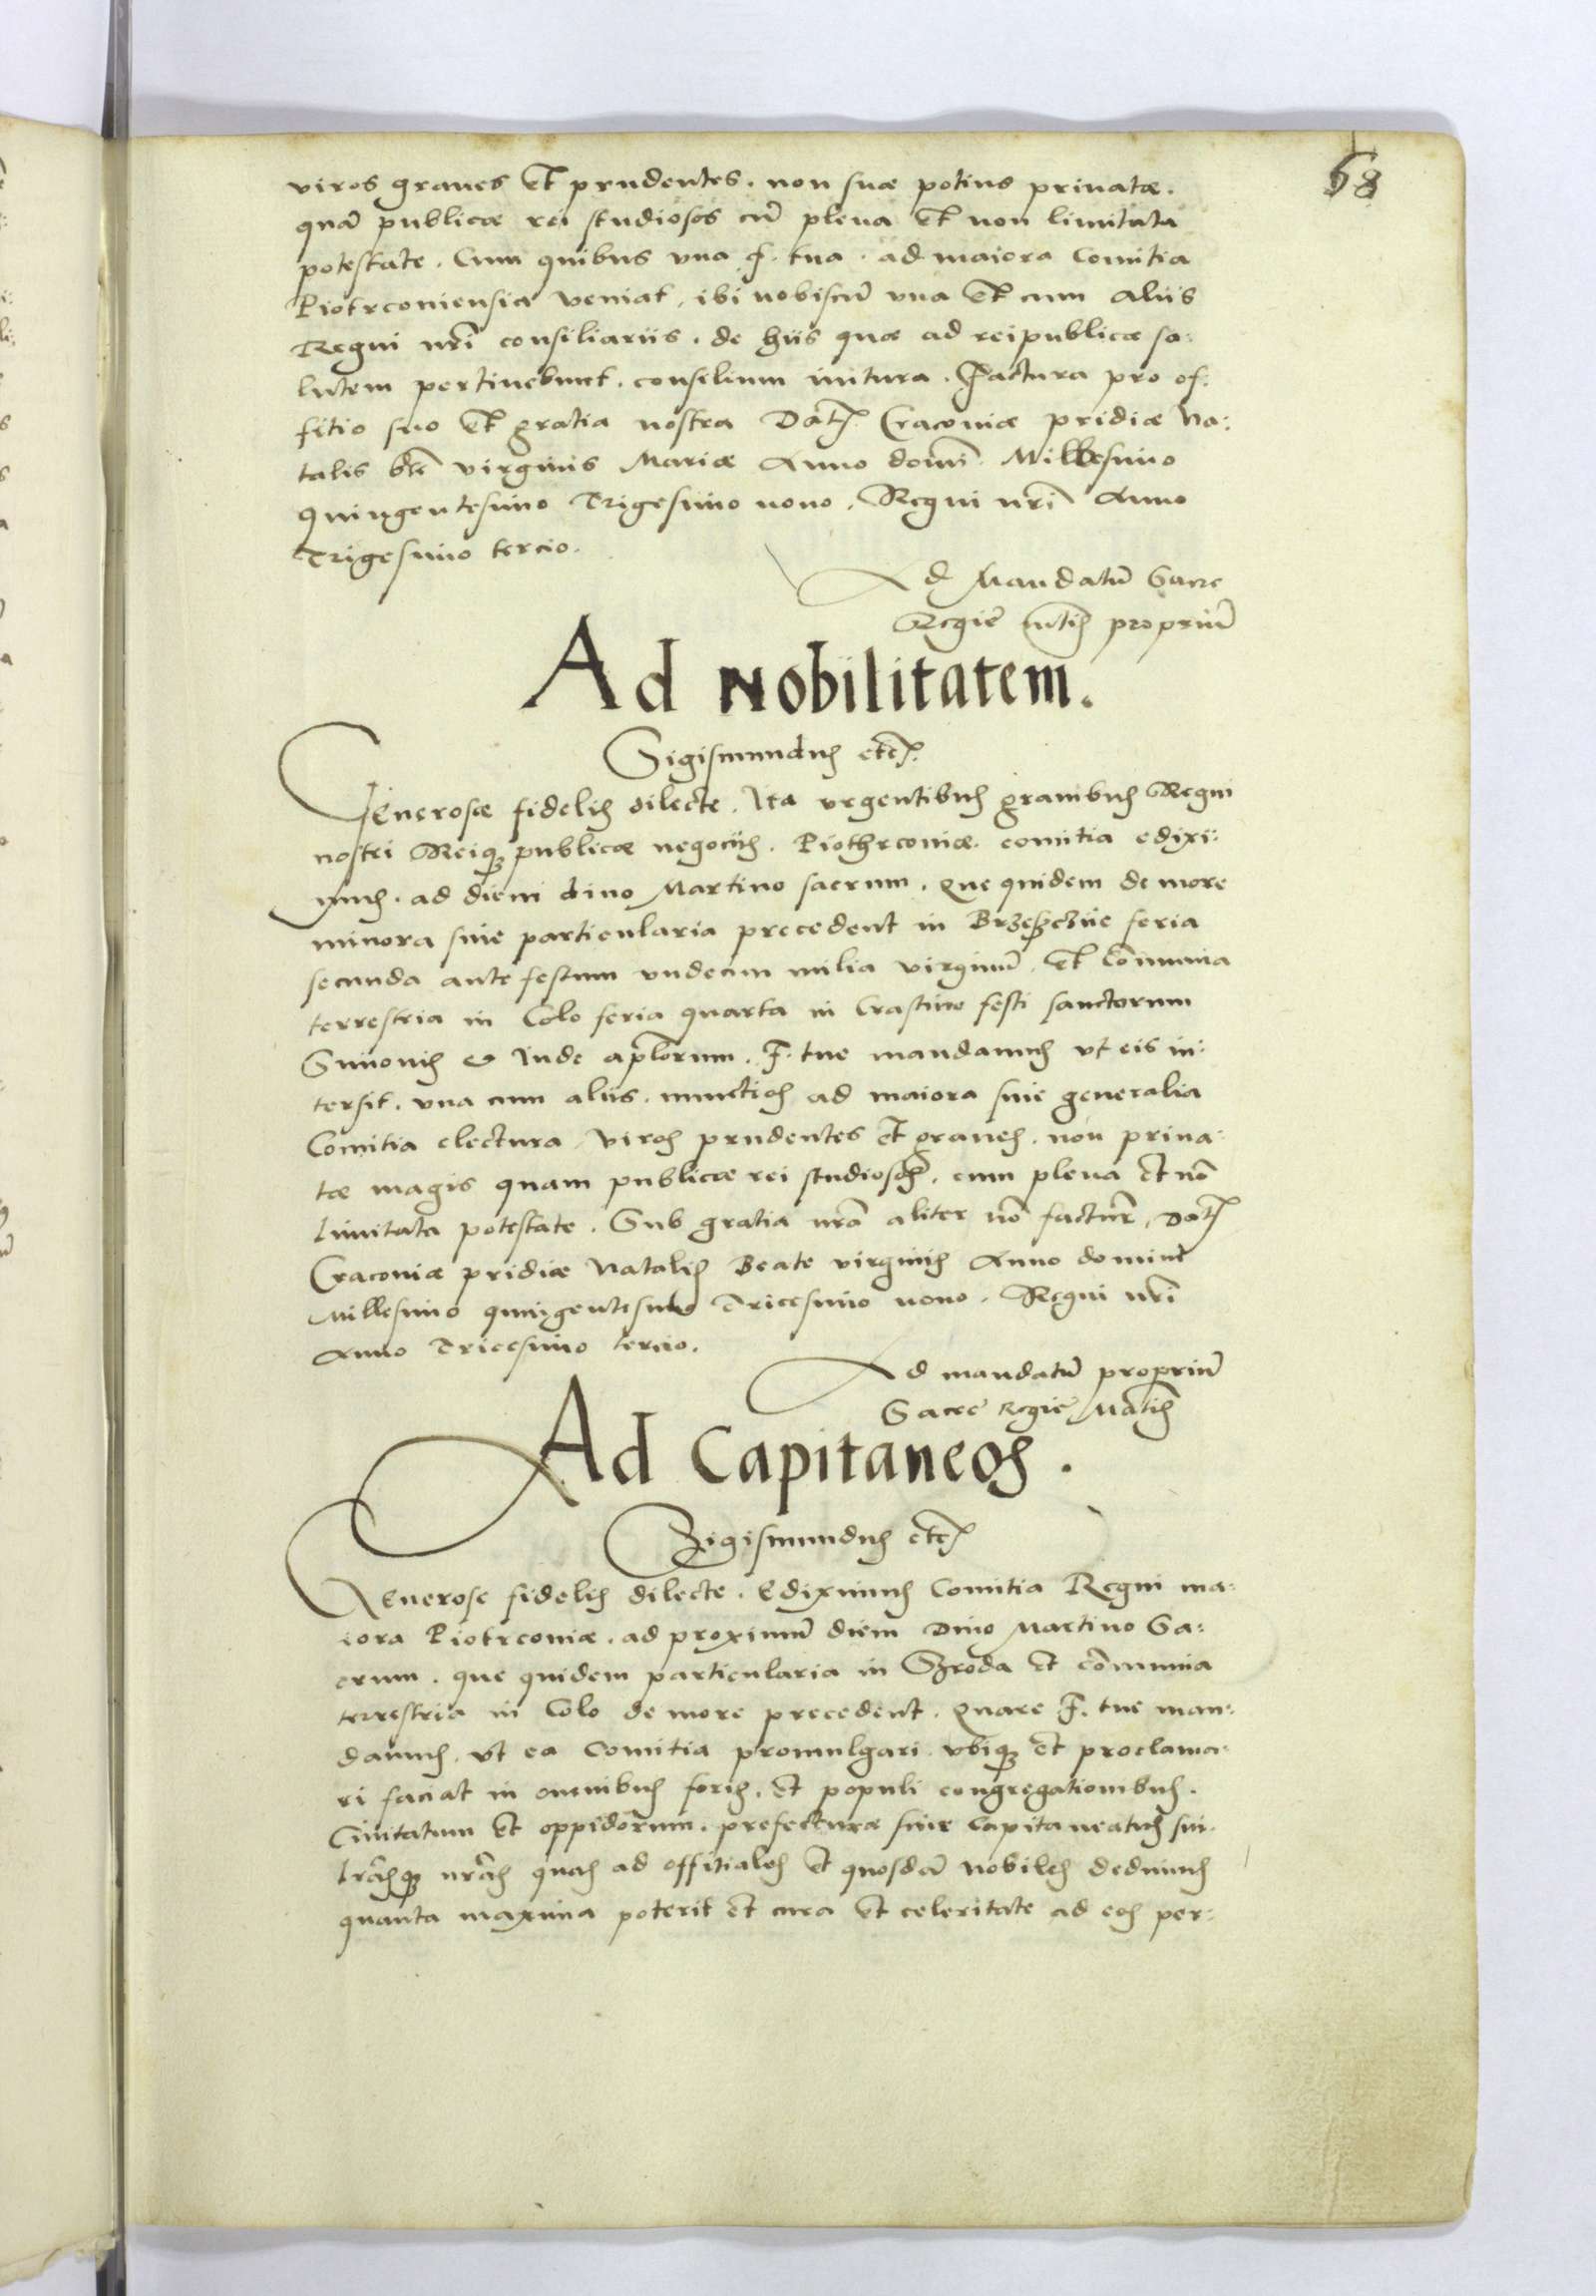 68
viros graues Et prudentes. non suæ potius priuatæ.
quā publicæ rei studiosos cū plena Et non limitata
potestate. Cum quibus vna f. tua. ad maiora Comitia
Piotrconiensia veniat, ibi nobiscū vna Et cum aliis
Regni nrī consiliariis. de hiis quæ ad reipublicæ sa:
lutem pertinebunt. consilium initura. Factura pro of:
fitio suo Et gratia nostra Dat. Cracoviæ pridiæ Na:
talis bte virginis Mariæ Anno domī Millesimo
Quingentesimo Trigesimo nono. Regni nrī Anno
Trigesimo tercio.
Ad Mandatū Sacre
Regie mtis propriū
Ad Nobilitatem.
Sigismundus etc.
Generosæ fidelis dilecte. Ita vrgentibus grauibus Regni
nostri Reiq publicæ negociis. Piothrconiæ. comitia edixi:
mus. ad diem diuo Martino sacrum. que quidem de more
minora siue particularia precedent in feria
secunda ante festum vndecim milia virginū. Et cōmunia
terrestria in Colo feria quarta in Crastino festi sanctorum
Simonis & Iude aplorum. F. tue mandamus vt eis in:
tersit. vna cum aliis. nunctios ad maiora siue generalia
Comitia electura. viros prudentes et graues. non priua:
tæ magis quam publicæ rei studiosos. cum plena et nō
limitata potestate. Sub gratia nrā aliter nō factur. Dat
Cracoviæ pridiæ Natalis Beate virginis Anno domini
Millesimo quingentesimo Tricesimo nono. Regni nrī
Anno Tricesimo tercio.
Ad mandatū propriū
Sacre Regie Matis
Ad Capitaneos.
Sigismundus etc
Generose fidelis dilecte. Edximus Comitia Regni ma:
iora Piotrconiæ. ad proximū diem Diuo Martino Sa:
crum. que quidem particularia in Szroda et cōmunia
terrestria in Colo de more precedent. quare F. tue man:
damus. vt ea Comitia promulgari vbiq et proclama:
ri faciat in omnibus foris. et populi congregationibus.
Ciuitatum et oppidorum. prefecturæ siue Capitaneatus sui.
Lrāsq nrās quas ad offitiales et quosdā nobiles dedimus
quanta maxima poterit et cura et celeritate ad eos per: